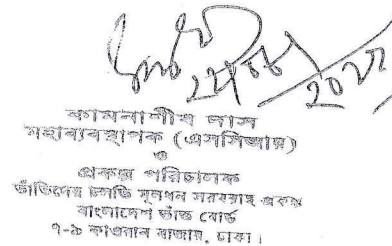 কামনাশীষ দাস
মহাব্যবস্থাপক (এসসিআর)
ও
প্রকল্প পরিচালক
তাঁতিদের চলতি মূলধন সরবরাহ প্রকল্প
বাংলাদেশ তাঁত বোর্ড
৭-৯ কাওরান বাজার, ঢাকা।